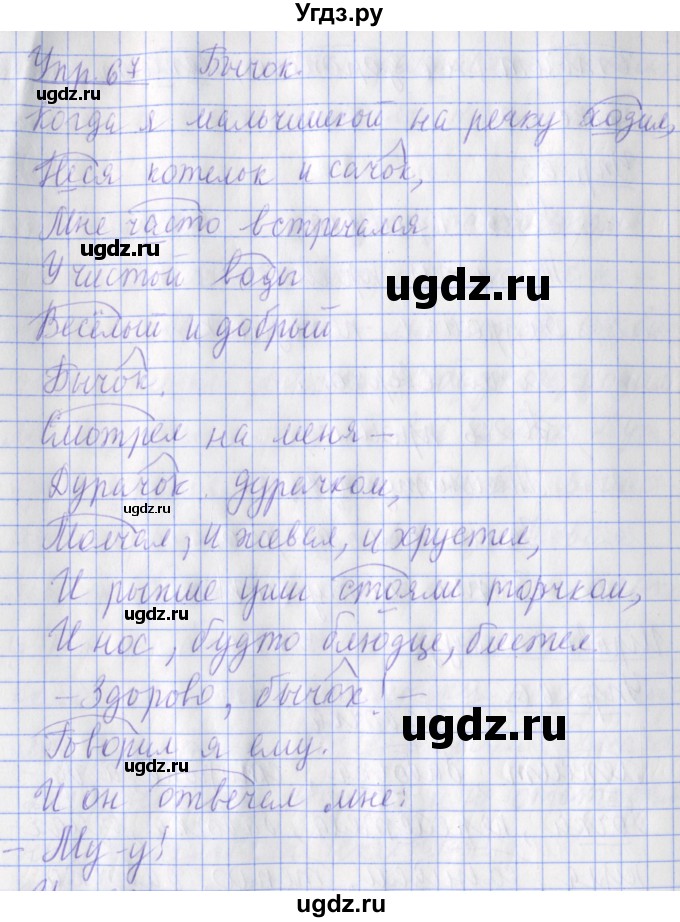 Угдз.ру
Упр. 67 Бычок.
ugdz.ru
Когда я мальчишкой на речку ходил,
Неся котелок и сачок,
Мне часто встречался
ugdz.ru
У чистой воды
ugdz.ru
Весёлый и добрый
Бычок.
Смотрел на меня –
Дурачок дурачком,
ugdz.ru
Молчал, и жевал, и хрустел,
И рыжие уши стояли торчком,
ugdz.ru
И нос, будто блюдце, блестел.
– Здорово, бычок! –
ugdz.ru
Говорил я ему.
ugdz.ru
И он отвечал мне:
– Му-у!
ugdz.ru